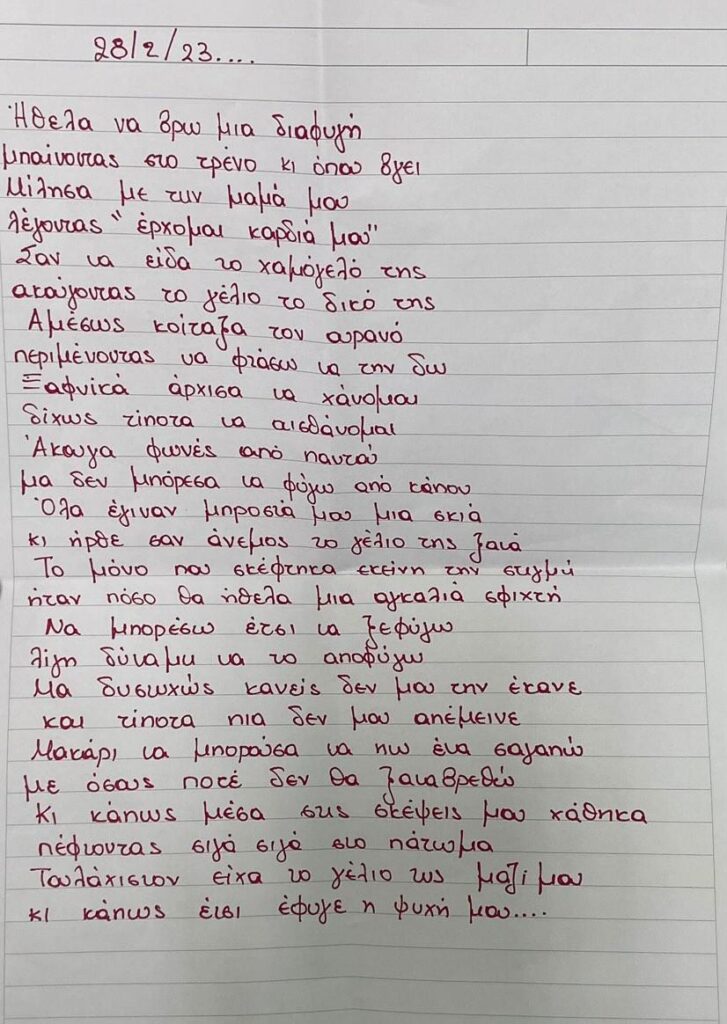 28/2/23....
Ήθελα να βρω μια διαφυγή
μπαίνοντας στο τρένο κι όπου βγει
Μίλησα με την μαμά μου
λέγοντας "έρχομαι καρδιά μου"
Σαν να είδα το χαμόγελό της
ακούγοντας το γέλιο το δικό της
Αμέσως κοίταξα τον ουρανό
περιμένοντας να φτάσω να την δω
Ξαφνικά άρχισα να χάνομαι
δίχως τίποτα να αισθάνομαι
Άκουγα φωνές από παντού
μα δεν μπόρεσα να φύγω από κάπου
Όλα έγιναν μπροστά μου μια σκιά
κι ήρθε σαν άνεμος το γέλιο της ξανά
Το μόνο που σκέφτηκα εκείνη την στιγμή
ήταν πόσο θα ήθελα μια αγκαλιά σφιχτή
Να μπορέσω έτσι να ξεφύγω
λίγη δύναμη να το αποφύγω
Μα δυστυχώς κανείς δεν μου την έκανε
και τίποτα πια δεν μου απέμεινε
Μακάρι να μπορούσα να πω ένα σαγαπώ
με όσους ποτέ δεν θα ξαναβρεθώ
Κι κάπως μέσα στις σκέψεις μου χάθηκα
πέφτοντας σιγά σιγά στο πάτωμα
Τουλάχιστον είχα το γέλιο της μαζί μου
κι κάπως έτσι έφυγε η ψυχή μου....